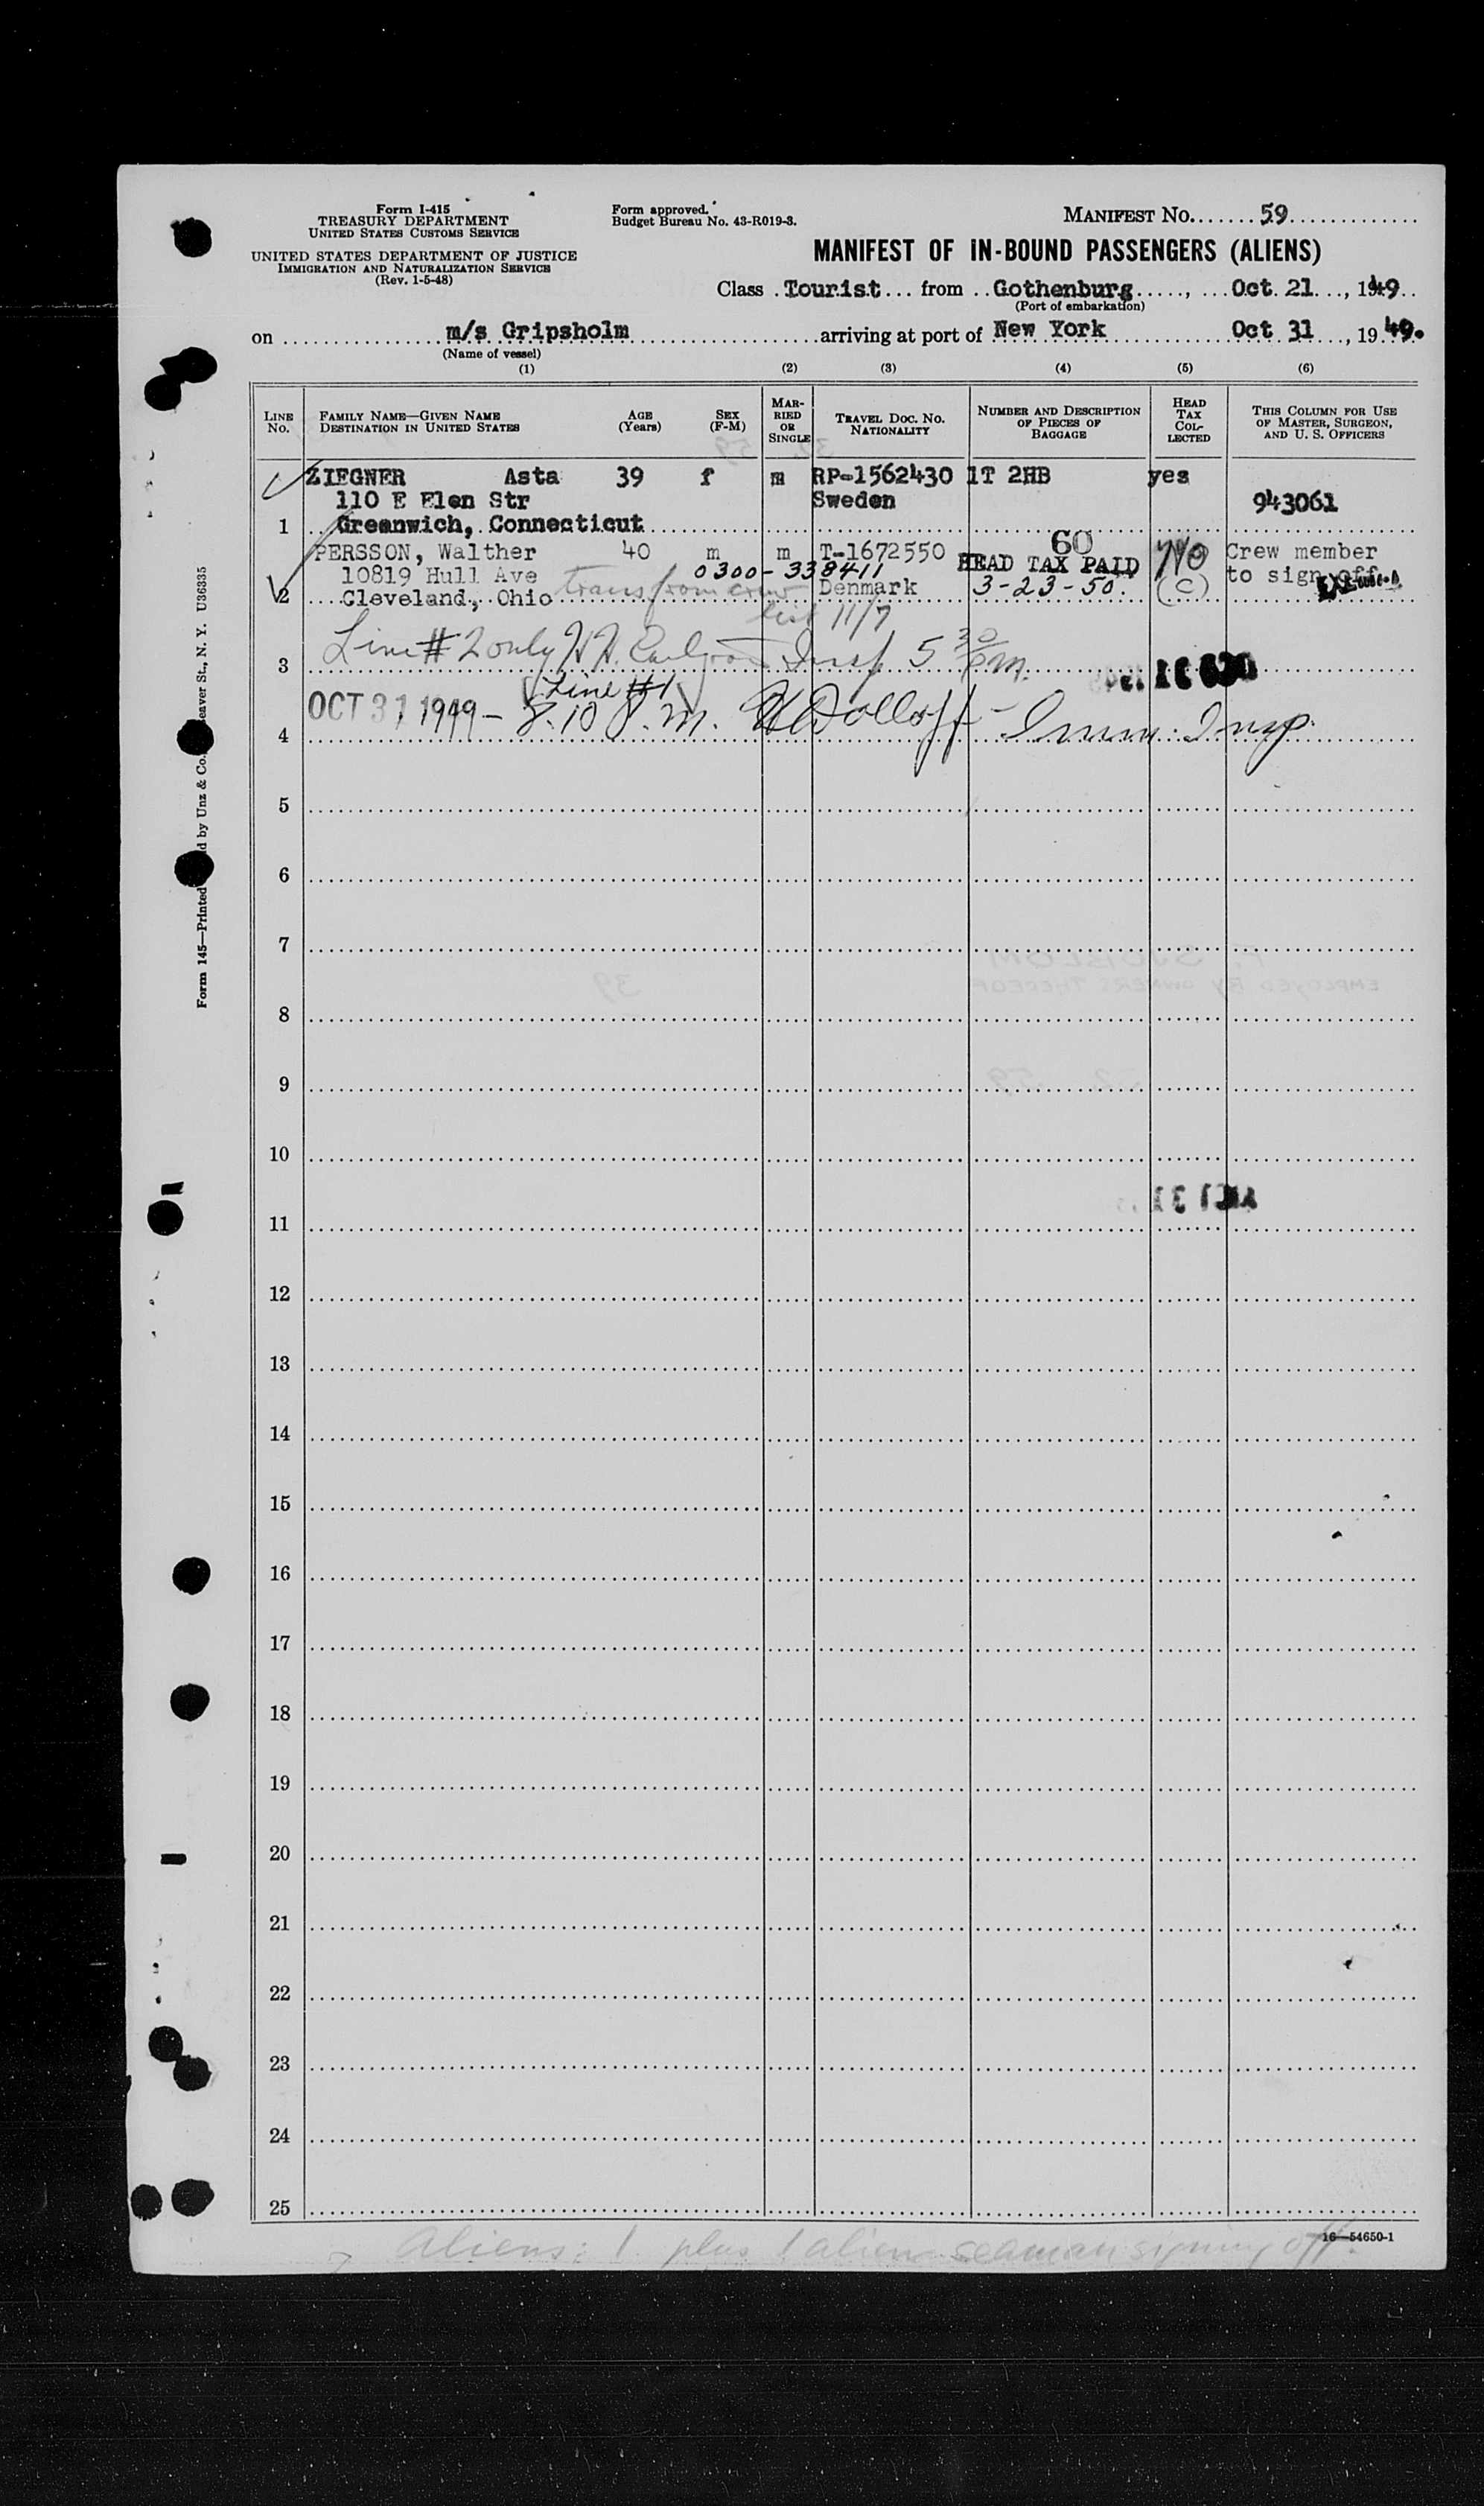 Form I-415
TREASURY DEPARTMENT
UNITED STATES CUSTOMS SERVICE
UNITED STATES DEPARTMENT OF JUSTICE
IMMIGRATION AND NATURALIZATION SERVICE
(Rev. 1-5-48)
Form approved.
Budget Bureau No. 43-R019-3.
MANIFEST NO. 59
MANIFEST OF IN-BOUND PASSENGERS (ALIENS)
Class Tourist from Gothenburg, Oct 21, 1949
(Port of embarkation)
on m/s Gripsholm arriving at port of New York Oct 31, 1949.
(Name of vessel)
(1) (2) (3) (4) (5) (6)
LINE No. FAMILY NAME—GIVEN NAME DESTINATION IN UNITED STATES AGE (Years) SEX (F-M) MARRIED OR SINGLE TRAVEL DOC. NO. NATIONALITY NUMBER AND DESCRIPTION OF PIECES OF BAGGAGE HEAD TAX COLLECTED THIS COLUMN FOR USE OF MASTER, SURGEON, AND U. S. OFFICERS
ZIEGNER Asta 39 f m RP-1562430 1T 2HB yes
110 E Elen Str Sweden 943061
1 Greenwich, Connecticut
PERSSON, Walther 40 m m T-1672550 60 No Crew member
10819 Hull Ave 0300-338411 HEAD TAX PAID to sign off
2 Cleveland, Ohio trans from crew Denmark 3-23-50. (C)
list 11/7
3 Line # 2 only Insp 5 30 pm.
Line #1
4 OCT 31 1949 - 8.10 P.m. Dolloff - Imm. Insp.
5
6
7
8
9
10
11
12
13
14
15
16
17
18
19
20
21
22
23
24
25
16—54650-1
Aliens: 1 plus 1 alien seaman signing off.
Form 145—Printed d by Unz & Co. eaver St., N. Y. U36335